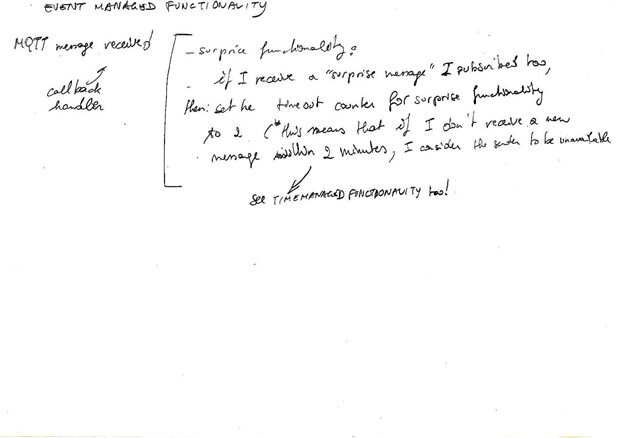 EVENT MANAGED FUNCTIONALITY
MQTT message received
callback
handler
- surprise functionality:
if I receive a "surprise message" I subscribed too,
then: set the timeout counter for surprise functionality
to 2 (this means that if I don't receive a new
message within 2 minutes, I consider the sender to be unavailable
see TIMEMANAGED FUNCTIONALITY too!